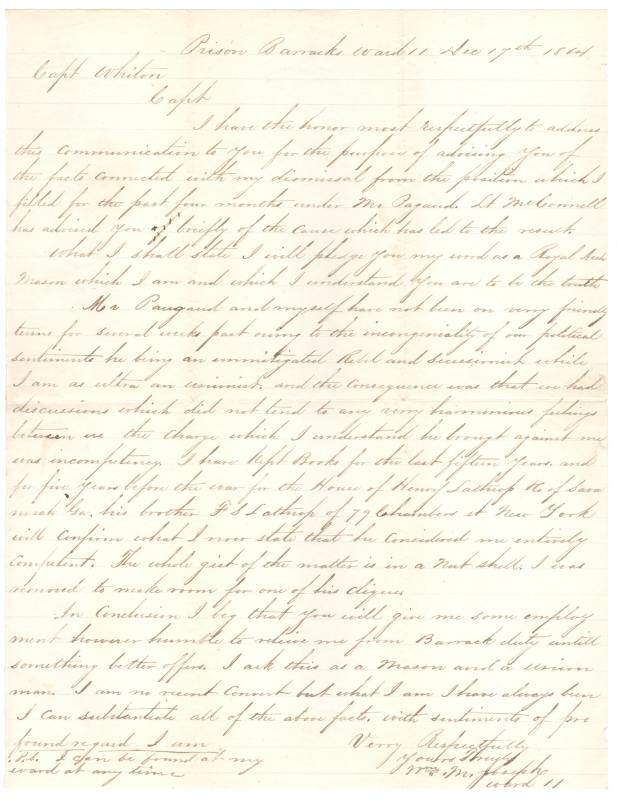 Prison Barracks Ward 11 Dec 17th 1864
Capt Whiton
Capt
I have the honor most respectfully to address
this communication to You for the purpose of advising You of
the facts connected with my dismissal from the position which I
filled for the past four months under Mr Pagaud. Lt McConnell
has advised You briefly of the cause which has led to the result.
What I shall state I will pledge You my word as a Royal Arch
Mason which I am and which I understand You are to be the truth
Mr Paugaud and myself have not been on very friendly
terms for several weeks past owing to the incongeniality of our political
sentiments he being an unmitigated Rebel and Secessionist while
I am as ultra an unionist, and the consequence was that we had
discussions which did not tend to any very harmonious feelings
between us the charge which I understand he brought against me
was incompetency. I have Kept Books for the last fifteen Years, and
for five Years before the war for the House of Henry Lathrop & Co of Sava
nnah Ga. his brother F S Lathrop of 79 Chambers st New York
will confirm what I now state that he considered me entirely
competent. The whole gist of the matter is in a Nut shell. I was
removed to make room for one of his clique.
In Conclusion I beg that You will give me some employ
ment however humble to relieve me from Barrack duty untill
something better offers. I ask this as a Mason and a union
man. I am no recent Convert but what I am I have always been
I can substantiate all of the above facts. with sentiments of pro
found regard I am Verry Respectfully
P.S. I can be found at my Yours Truly
ward at any time Wm. M. Joseph
ward 11